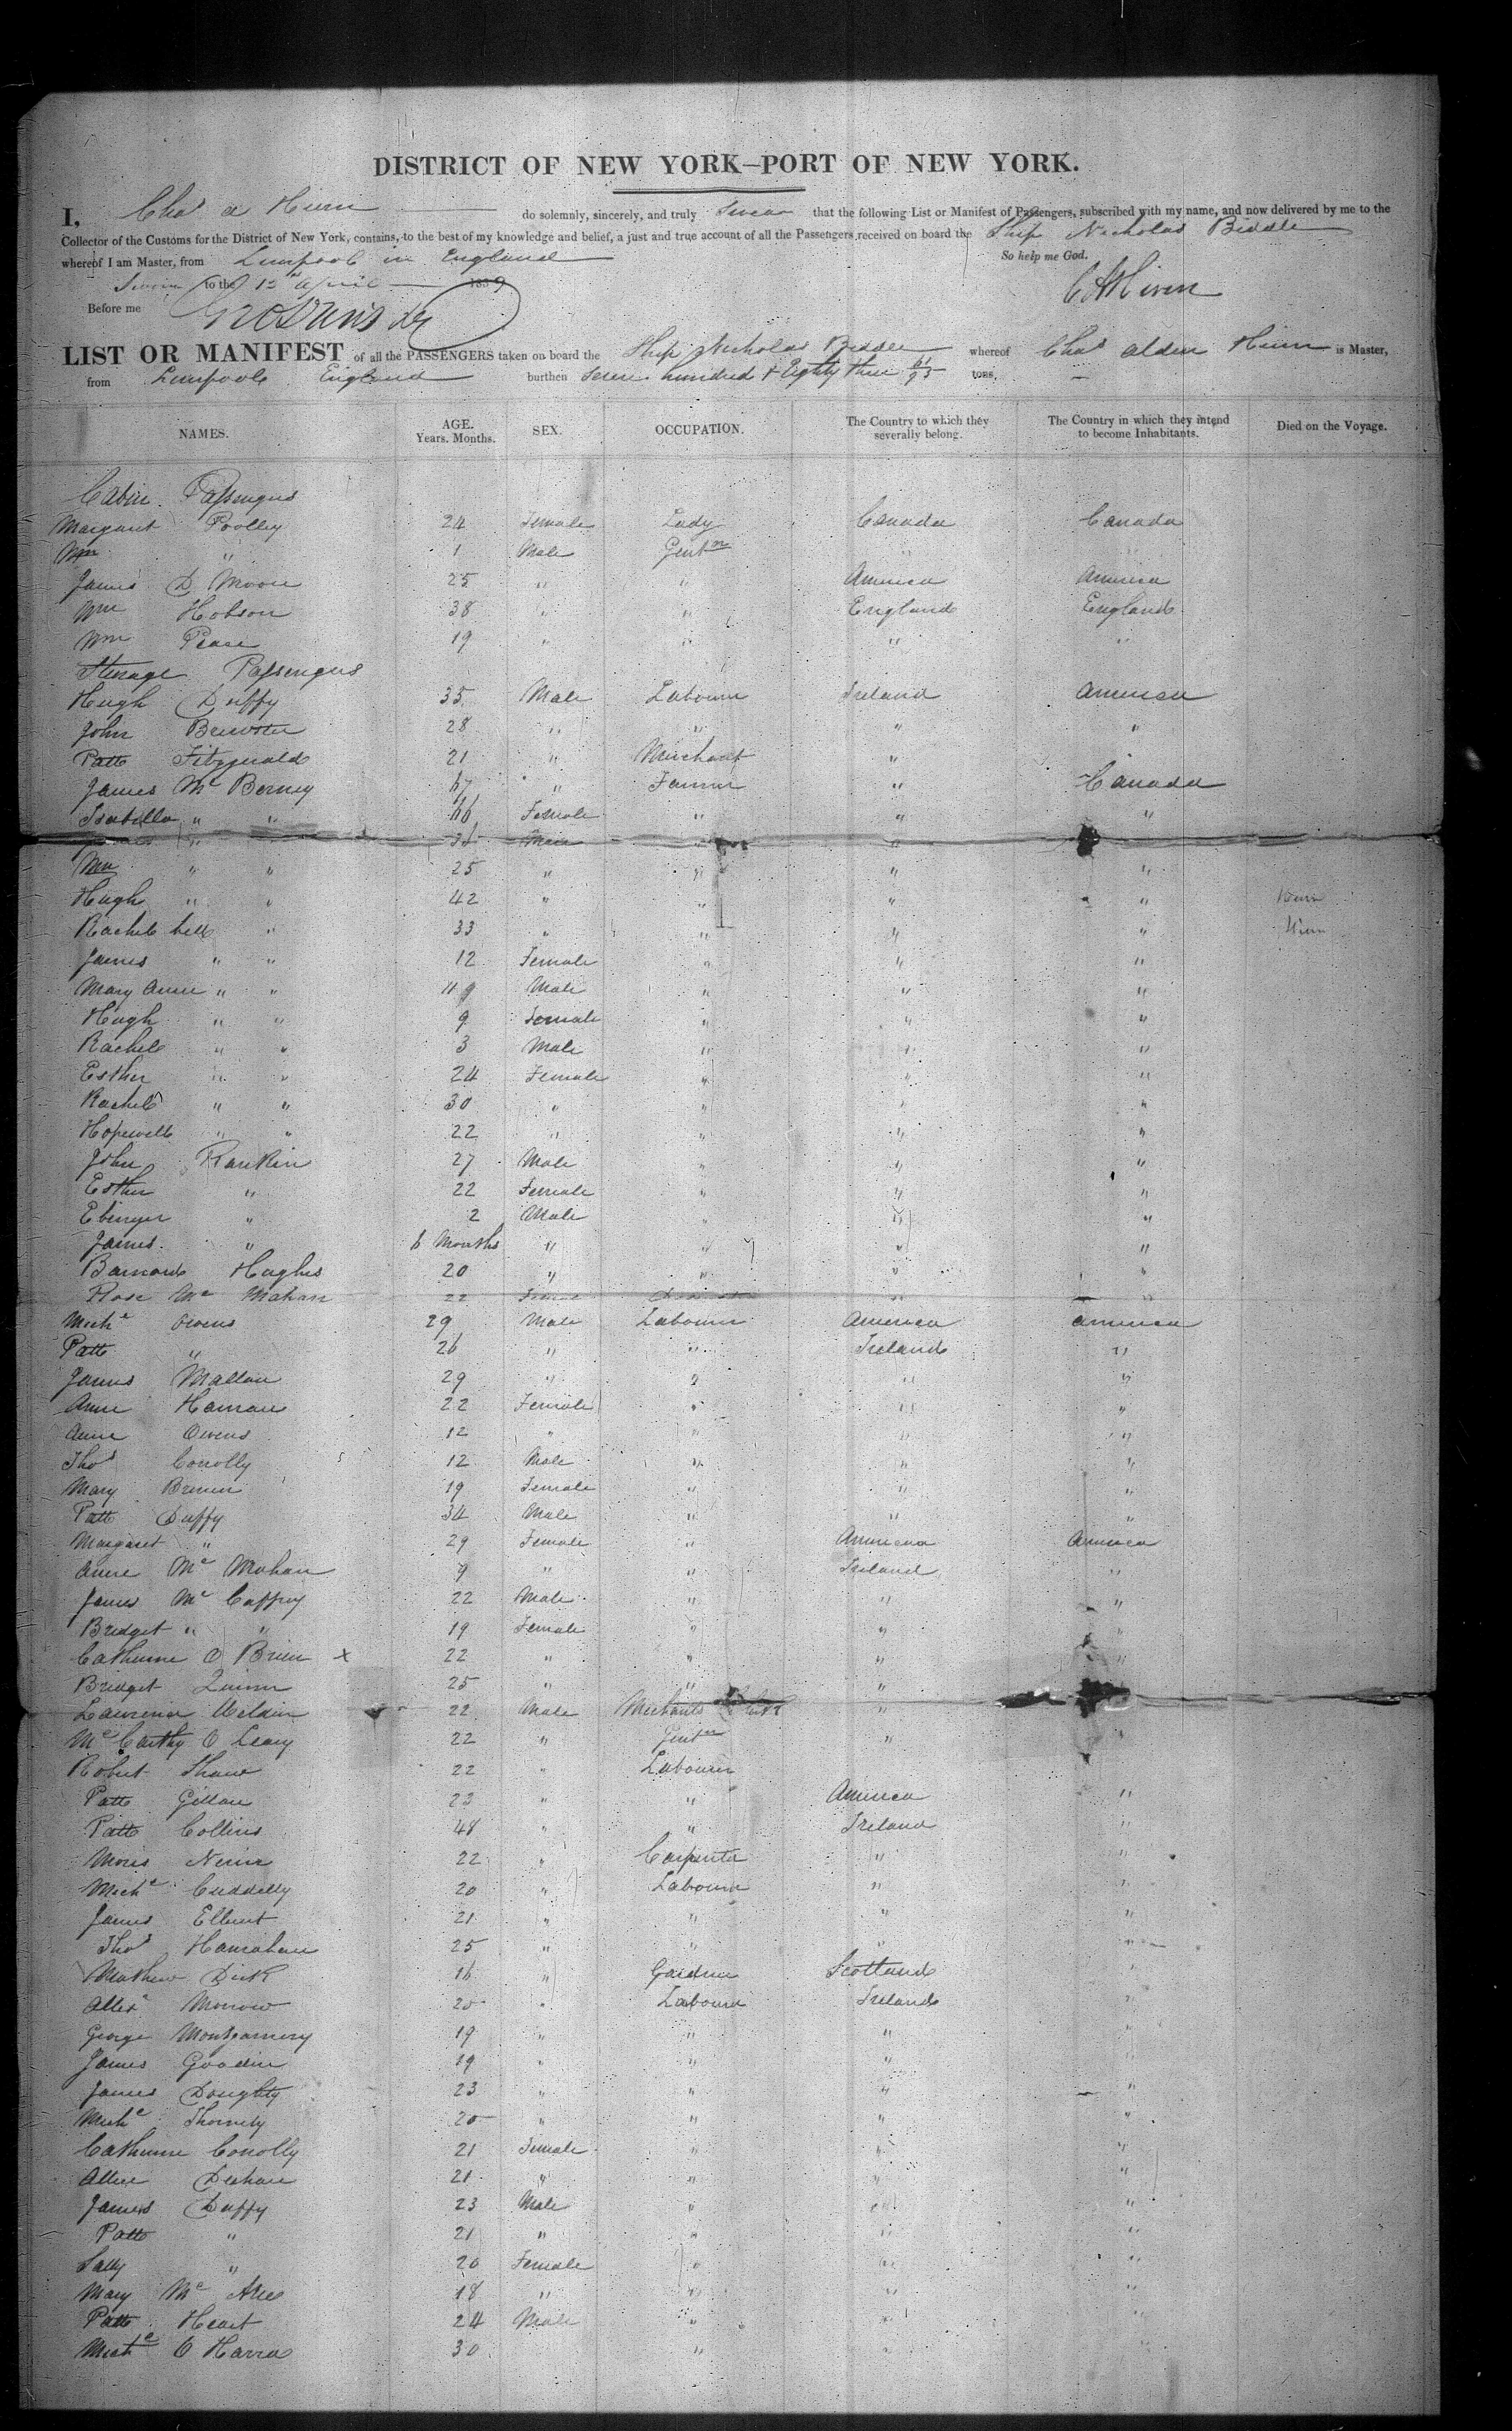 DISTRICT OF NEW YORK—PORT OF NEW YORK.
I, Chas A do solemnly, sincerely, and truly Swear that the following List or Manifest of Passengers, subscribed with my name, and now delivered by me to the
Collector of the Customs for the District of New York, contains, to the best of my knowledge and belief, a just and true account of all the Passengers received on board the Ship Nicholas Biddle
whereof I am Master, from Liverpool in England So help me God.
Sworn to the 12 April 1839
Before me
LIST OR MANIFEST of all the PASSENGERS taken on board the Ship Nicholas Biddle whereof Chas Alden is Master,
from Liverpool England burthen Seven hundred & Eighty three 61/95 tons.
NAMES. AGE. Years. Months. SEX. OCCUPATION. The Country to which they severally belong. The Country in which they intend to become Inhabitants. Died on the Voyage.
Cabin Passengers
Margaret Poolley 24 Female Lady Canada Canada
Wm " 1 Male Gentn " "
James D Moore 25 " " America America
Wm Hobson 38 " " England England
Wm Pease 19 " " " "
Steerage Passengers
Hugh Duffy 35 Male Labourer Ireland America
John Brewster 28 " " " "
Patk Fitzgerald 21 " Merchant " "
James Mc Berney 67 " Farmer " Canada
Isabella " " 66 Female " " "
" "
Wm " " 25 " " " "
Hugh " " 42 " " " "
Rachel " 33 " " " "
James " " 12 Female " " "
Mary Anne " " 9 Male " " "
Hugh " " 9 Female " " "
Rachel " " 3 Male " " "
Esther " " 24 Female " " "
Rachel " " 30 " " " "
Hopewell " " 22 " " " "
John Rankin 27 Male " " "
Esther " 22 Female " " "
Ebenezer " 2 Male " " "
James " 6 Months " " " "
Barnard Hughes 20 " " " "
Rose Mc Mahan 22 " "
Michl Owens 29 Male Labourer America America
Patk " 26 " " Ireland "
James Mallon 29 " " " "
Anne 22 Female " " "
Anne Owens 12 " " " "
Thos Conolly 12 Male " " "
Mary 19 Female " " "
Patk Duffy 34 Male " " "
Margaret " 29 Female " America America
Anne Mc Mahan 9 " " Ireland "
James Mc Caffrey 22 Male " " "
Bridget " " 19 Female " " "
Catherine O Brien x 22 " " " "
Bridget Quinn 25 " " "
Lawrence Weldin 22 Male Merchants Clerk "
Mc Carthy O Leary 22 " Gentn " "
Robert Shaw 22 " Labourer
Patk Gillan 23 " " America "
Patk Collins 48 " " Ireland "
22 " Carpenter " "
Michl Cuddelly 20 " Labourer " "
James 21 " " " "
Thos Hanrahan 25 " " " "
Mathew Dick 16 " Gardner Scotland "
Alexr Morrow 20 " Labourer Ireland "
George Montgomery 19 " " " "
James Goodin 19 " " "
James Doughty 23 " " " "
Michl 20 " " " "
Catherine Conolly 21 Female " " "
21 " " " "
James Duffy 23 Male " " "
Patk " 21 " " " "
Sally " 20 Female " " "
Mary Mc 18 " " " "
Patk Heart 24 Male " " "
Michl O Harra 30 " "